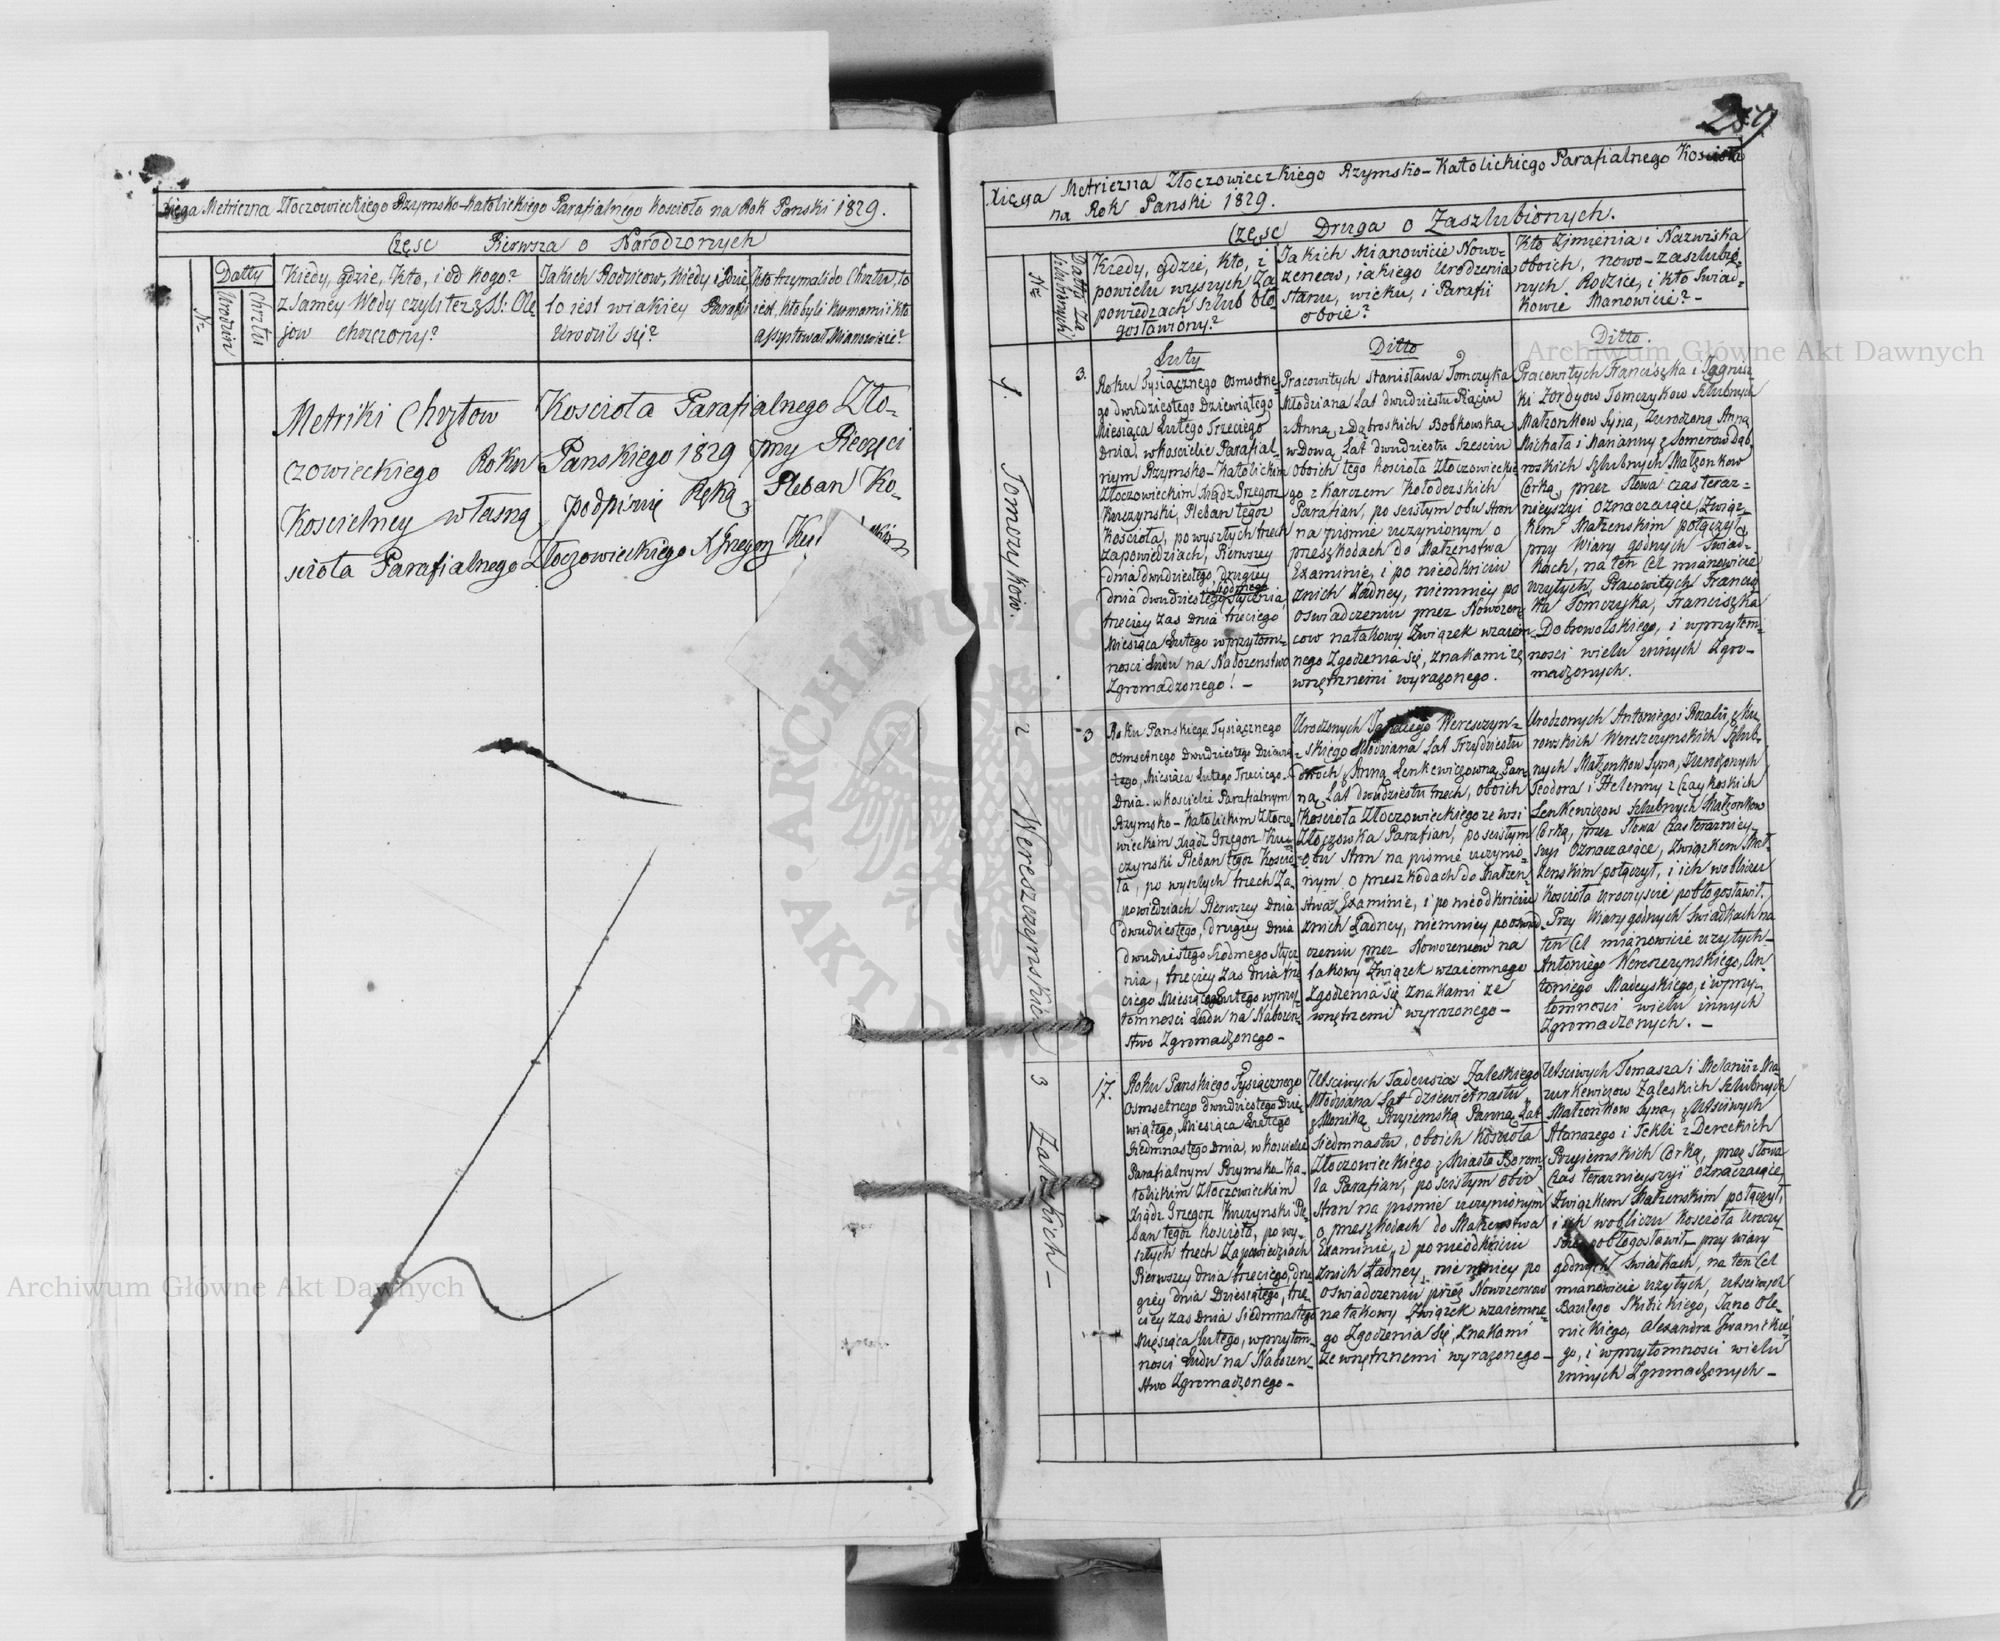 Xięga Metriczna Złoczowieckiego Rzymsko-Katolickiego Parafialnego Kościoła na Rok Panski 1829.
Częsc Pierwsza o Narodzonych
Nr
Datty
Urodzin
Chrztu
Kiedy, gdzie, Kto, i od kogo?
z samey Wody czyli też z SS. Ole
jow chrzczony?
Jakich Rodzicow, Kiedy i Gdzie,
to iest w iakiey Parafii
Urodził się?
Kto trzymali do Chrztu, to
iest, Kto byli Kumami i kto
assystował Mianowicie?
Metriki Chrztow Koscioła Parafialnego Zło-
czowieckiego Roku Panskiego 1829 przy Pieczęci
Koscielney własną podpisuię Ręką Pleban Ko-
scioła Parafialnego Złoczowieckiego X Grzegorz
Xięga Metriczna Złoczowieckiego Rzymsko-Katolickiego Parafialnego Koscioła
na Rok Panski 1829.
Częsc Druga o Zaszlubionych.
Nr
Datta Za
szlubionych
Kiedy, gdzie, kto, i
po wielu wyszych Za
powiedziach szlub bło
gosławiony?
Jakich Mianowicie Nowo-
żencow, iakiego Urodzenia
stanu, wieku, i Parafii
oboie?
Kto z Imienia i Nazwiska
oboich, nowo-zaszlubio-
nych, Rodzice, i kto swiad-
kowie Mianowicie? -
1.
Tomczykow.
3.
Luty
Roku Tysiącznego Osmsetne-
go dwudziestego Dziewiątego
Miesiąca Lutego Trzeciego
Dnia, w Kosciele Parafial-
nym Rzymsko-Katolickim
Złoczowieckim Xiądz Grzegorz
Kurczynski, Pleban tegoż
Kosciola, po wyszłych trzech
Zapowiedziach, Pierwszey
dnia dwudziestego, drugiey
siodmego
dnia dwudziestego stycznia,
trzeciey zas dnia trzeciego
Miesiąca Lutego w przytom-
nosci Ludu na Nabożenstwo
Zgromadzonego! -
Ditto
Pracowitych Stanisława Tomczyka
Młodziana Lat dwudziestu Pięciu
z Anną z Dąbroskich Bobkowską
wdową Lat dwudziestu Szesciu
oboich tego kosciola Złoczowieckie
go z Karczem Kołoderskich
Parafian, po scisłym obu stron
na pismie uczynionym o
przeszkodach do Małżenstwa
Examinie, i po nieodkriciu
znich Żadney, niemniey po
oswiadczeniu przez Nowożen
cow na takowy Związek wzaiem
nego Zgodzenia się, znakami ze
wnętrznemi wyrażonego.
Ditto.
Pracowitych Franciszka i Jagnisz-
ki Tomczykow Szlubnych
Małżonkow Syna, z urodzoną Anną
Michała i Marianny z Somerow Dąb
roskich Szlubnych Małżonkow
Corką, przez słowa czas teraz-
nieyszy oznaczaiące, Związ-
kiem Małżenskim połączył
przy Wiary godnych swiad-
kach, na ten cel mianowicie
uzytych, Pracowitych Francisz
ka Tomczyka, Franciszka
Dobrowolskiego, i w przytom-
nosci wielu innych Zgro-
madzonych.
2
Wereszczynskich
3
Roku Panskiego Tysiącznego
Osmsetnego Dwudziestego Dziewią
tego, Miesiąca Lutego Trzeciego
Dnia w kosciele Parafialnym
Rzymsko-Katolickim Złoczo-
wieckim Xiądz Grzegorz Kur-
czynski Pleban tegoż Koscio-
ła, po wyszłych trzech Za-
powiedziach Pierwszey dnia
dwudziestego, drugiey dnia
dwudziestego Siodmego Stycz
nia, trzeciey zas dnia trze
ciego Miesiąca Lutego w przy-
tomnosci Ludu na Nabożen-
stwo Zgromadzonego -
Urodzonych Wereszczyn-
skiego Młodziana Lat Trzydziestu
z Anną Lenkewiczowną Pan
ną Lat dwudziestu trzech, oboich
Kosciola Złoczowieckiego ze wsi
Złoczowka Parafian, po scisłym
obu stron na pismie uczynio-
nym o przeszkodach do Małżen-
stwa Examinie, i po nieodkriciu
znich Żadney, niemniey po oswiad
czeniu przez Nowożencow na
takowy Związek wzaiemnego
Zgodzenia się znakami ze
wnętrznemi wyrażonego -
Urodzonych Antoniego i Rozalii z Ku
rowskich Wereszczynskich Szlub-
nych Małżonkow Syna, z urodzonych
Teodora i Helenny z Czaykoskich
Lenkewiczow Szlubnych Małżonkow
Corką, przez słowa Czas terazniey
szy oznaczaiące, Związkiem Mał-
żenskim połączył, i ich w obliczu
Kosciola uroczyscie pobłogosławił.
Przy Wiary godnych Swiadkach na
ten cel mianowicie uzytych
Antoniego Wereszczynskiego, An
toniego Madeyskiego, i w przy-
tomnosci wielu innych
Zgromadzonych. -
3
Zaleskich -
17.
Roku Panskiego Tysiącznego
Osmsetnego dwudziestego Dzie
wiątego, Miesiąca Lutego
Siedmnastego Dnia, w Kosciele
Parafialnym Rzymsko-Ka-
tolickim Złoczowieckim
Xiądz Grzegorz Kurczynski Ple
ban tegoż Kosciola, po wy-
szłych trzech Zapowiedziach
Pierwszey dnia trzeciego, dru
giey dnia Dziesiątego, trze
ciey zas dnia Siedmnastego
Miesiąca Lutego, w przytom-
nosci Ludu na Nabożen-
stwo Zgromadzonego -
Usciwych Tadeusza Zaleskiego
Młodziana Lat dziewietnastu
z Moniką Przyiemską Panną Lat
siedmnastu, oboich Kosciola
Złoczowieckiego z Miasta Borem
la Parafian, po scisłym obu
stron na pismie uczynionym
o przeszkodach do Małżenstwa
Examinie, i po nieodkriciu
znich Żadney, niemniey po
oswiadczeniu przez Nowożencow
na takowy Związek wzaiemne
go Zgodzenia się, znakami
ze wnętrznemi wyrażonego -
Usciwych Tomasza i Melanii z Ma
zurkewiczow Zaleskich Szlubnych
Małżonkow Syna, z Usciwych
Atanazego i Tekli z Dereckich
Przyiemskich Corką, przez słowa
Czas teraznieyszy oznaczaiące,
Związkiem Małżenskim połączył,
i ich w obliczu Kosciola Uroczy-
scie pobłogosławił przy wiary
godnych Swiadkach, na ten Cel
mianowicie uzytych, usciwych
Bazilego Skibickiego, Jana Ole-
nickiego, Alexandra
go, i w przytomnosci wielu
innych Zgromadzonych -
Archiwum Główne Akt Dawnych
Archiwum Główne Akt Dawnych
ARCHIWUM GŁÓWNE AKT DAWNYCH